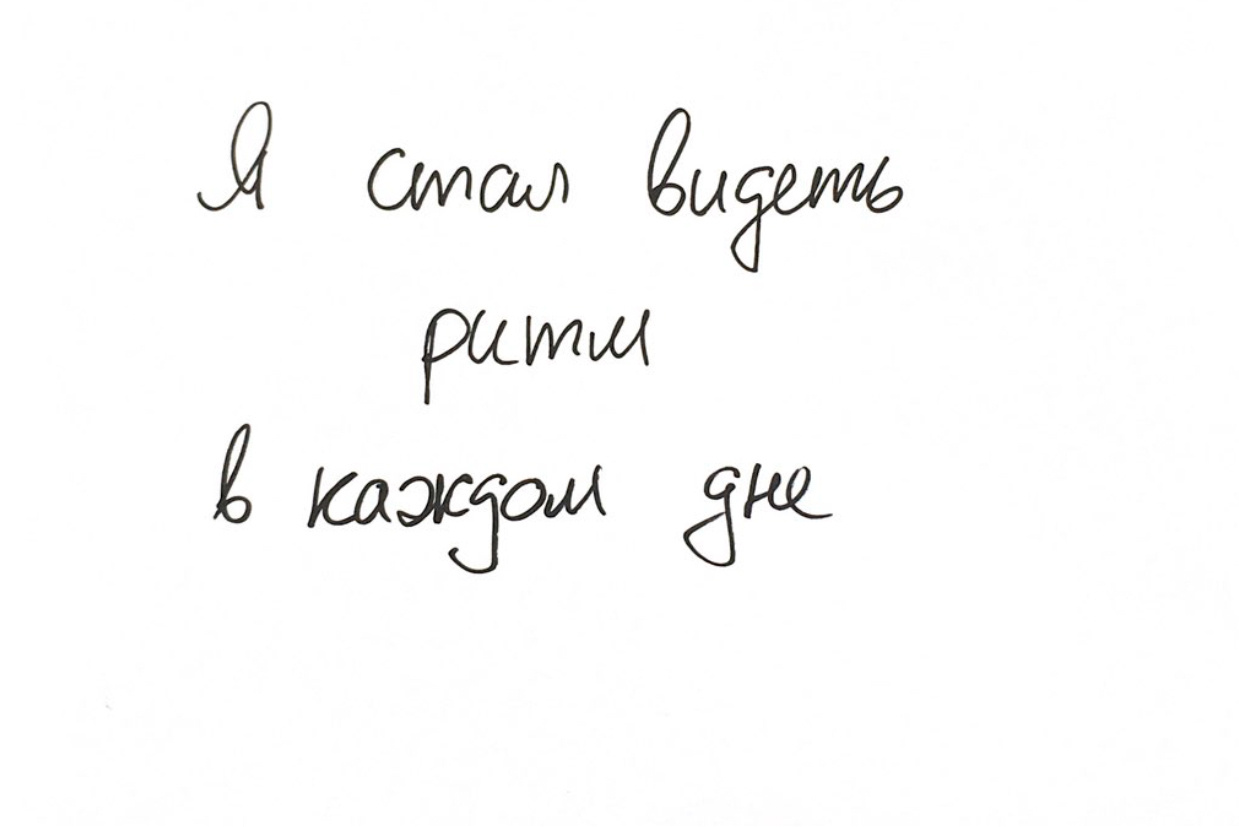 Я стал видеть
ритм
в каждом дне